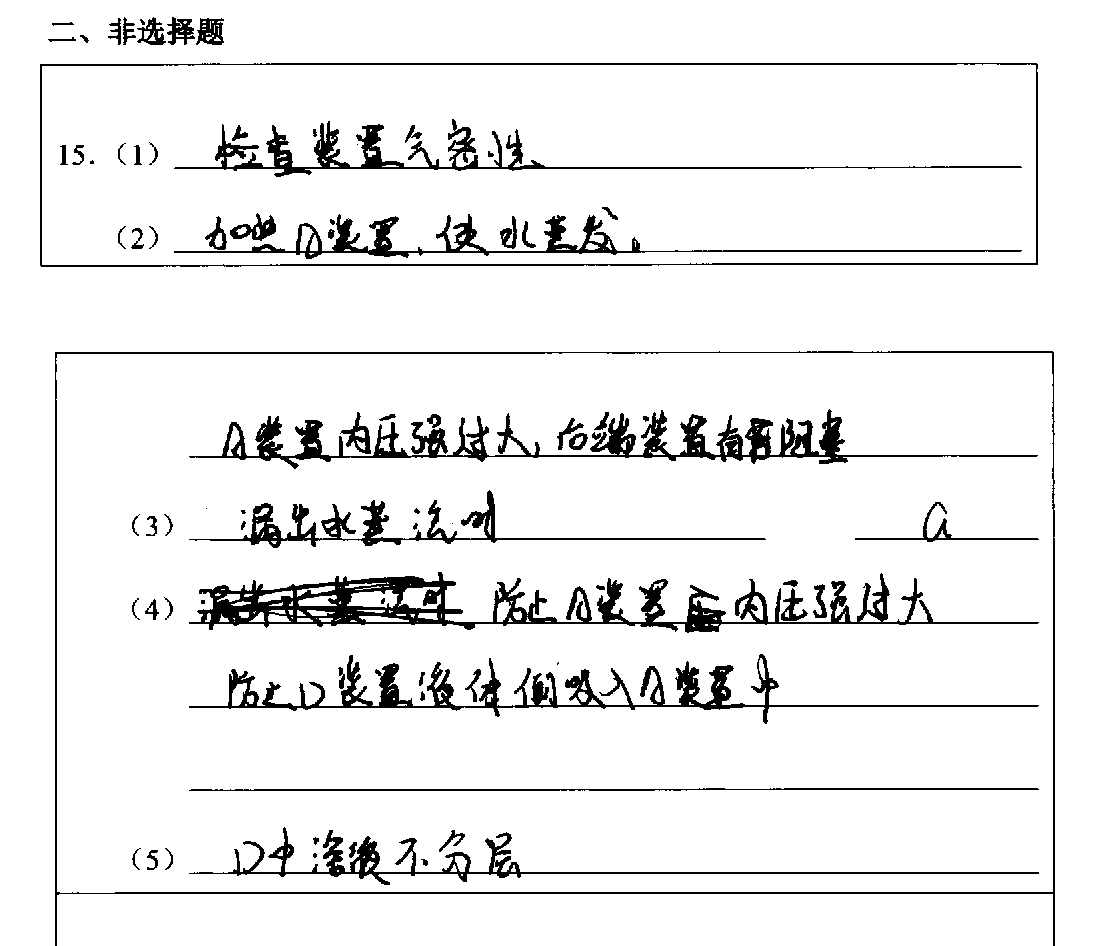 二、非选择题
15.（1）检查装置气密性、
（2）加热A装置，使水蒸发。
A装置内压强过大，后端装置有阻塞
（3）漏出水蒸汽时 a
（4）防止A装置内压强过大
防止D装置液体倒吸入A装置中
（5）D中溶液不分层